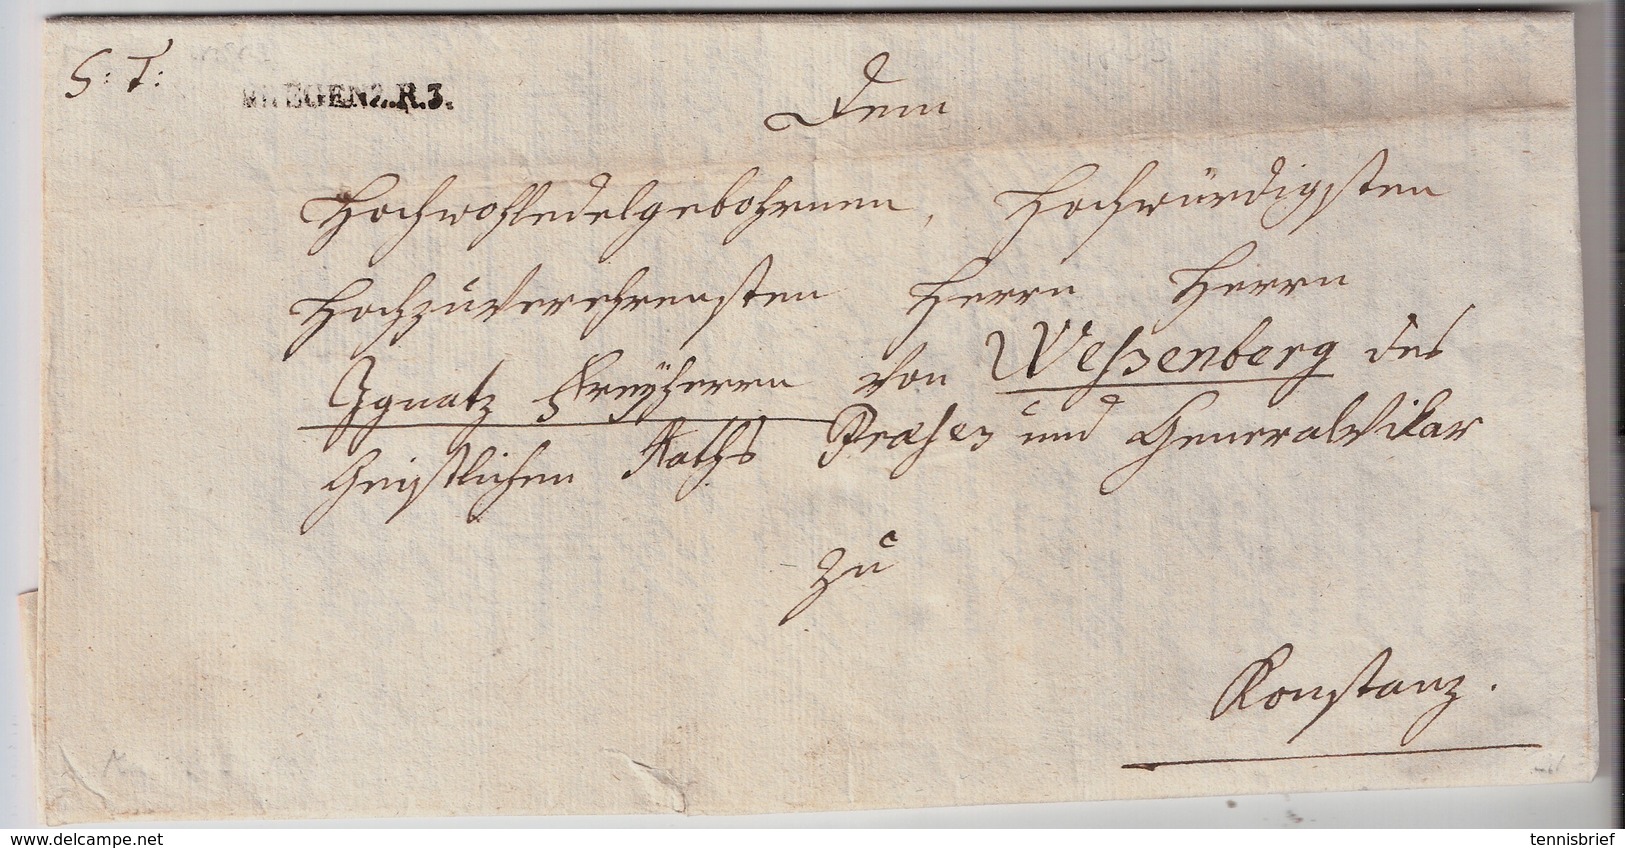 S: T:
BREGENZ.R.3.
Dem
Hochwohledelgebohrnen, Hochwürdigsten
Hochzuverehrensten Herrn Herrn
Ignatz Freÿherrn von Weßenberg des
Geistlichen Raths Præses und GeneralVikar
zu
Konstanz.
delcampe.net
tennisbrief